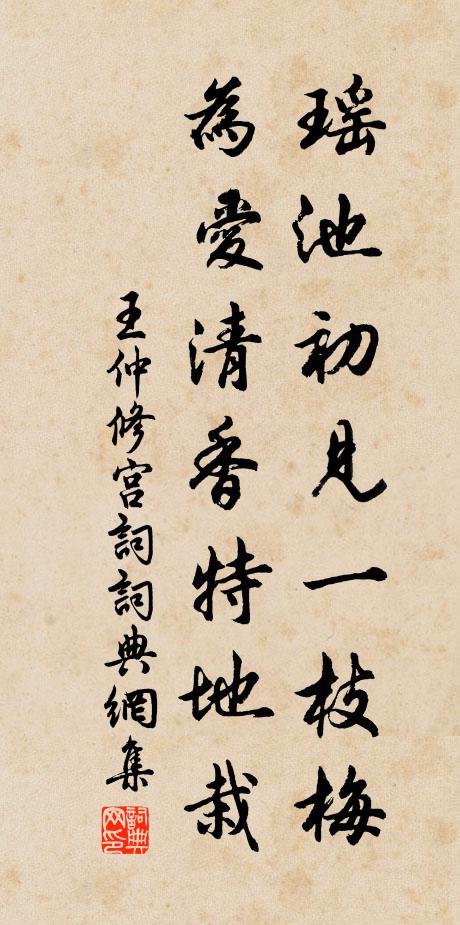 瑶池初見一枝梅
為愛清香特地栽
王仲修宫詞詞典網集
詞典網印